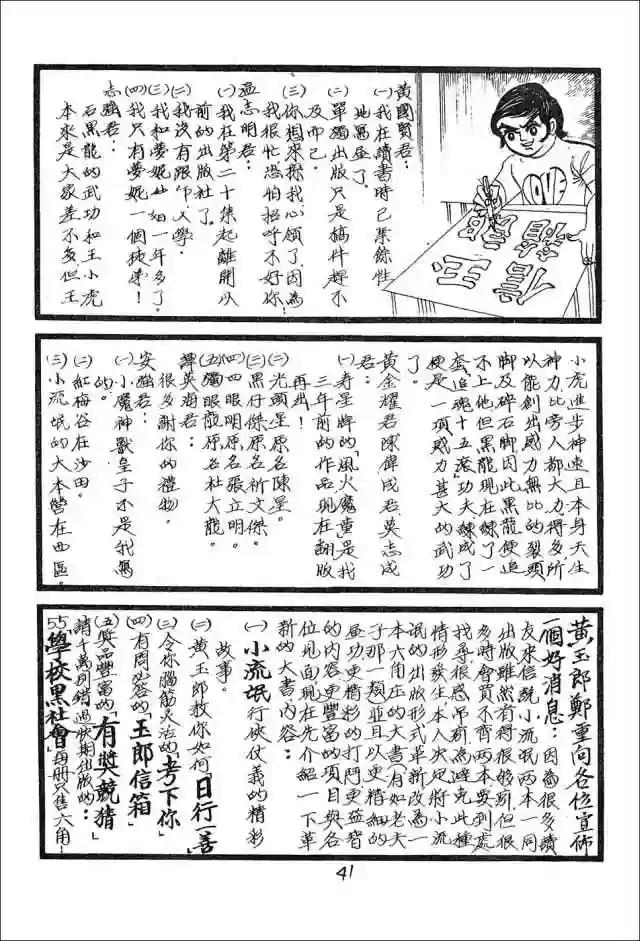 黃國賢君：
(一)我在讀書時已業餘性
地寫畫了。
(二)單獨出版只是稿件趕不
及而已。
(三)你想來探我心領了因為
我很忙恐怕招呼不好你！
孟志明君：
(一)我在第二十集起離開以
前的出版社了。
(二)我沒有跟作人學。
(三)我和夢妮妲姐一年多了。
(四)我只有夢妮一個徒弟！
志強君：
石黑龍的武功和王小虎
本來是大家差不多但王
LOVE
玉
郎
信
箱
小虎進步神速且本身天生
神力比旁人都大力得多所
以能創出威力無比的裂頭
脚及碎石脚因此黑龍便追
不上他但黑龍現在練了一
套追魂十五滾功夫練成了
便是一項威力甚大的武功
了。
黃金耀君陳偉成君吳志成
君：
(一)壽星牌的「風火魔童是我
三年前的作品現在翻版
再出！
(二)光頭星原名陳星。
(三)黑仔傑原名祈文傑。
(四)四眼明原名張立明。
(五)獨眼龍原名杜大龍。
譚英海君：
很多謝你的禮物。
安強君：
(一)小魔神獸皇子不是我寫
的。
(二)紅梅谷在沙田。
(三)小流氓的大本營在西區。
黃玉郎鄭重向各位宣佈
一個好消息：因為很多讀
友來信說小流氓兩本一同
出版雖然看得很够癮但很
多時會買不齊兩本要到處
找尋很感吊癮為避免此種
情形發生本人決定將小流
氓的出版形式革新改為一
本六角庄的大書有如老夫
子那一類並且以更精細的
畫功更精彩的打鬥更益智
的內容更豐富的項目與各
位見面現在先介紹一下革
新的大書內容：
(一)小流氓行俠仗義的精彩
故事。
(二)黃玉郎教你如何「日行一善」
(三)令你腦筋灵活的「考下你」
(四)有問必答的「玉郎信箱」
(五)獎品豐富的「有獎競猜」
請千萬別錯過快期出版的：
55「學校黑社會」每册只售六角！
41